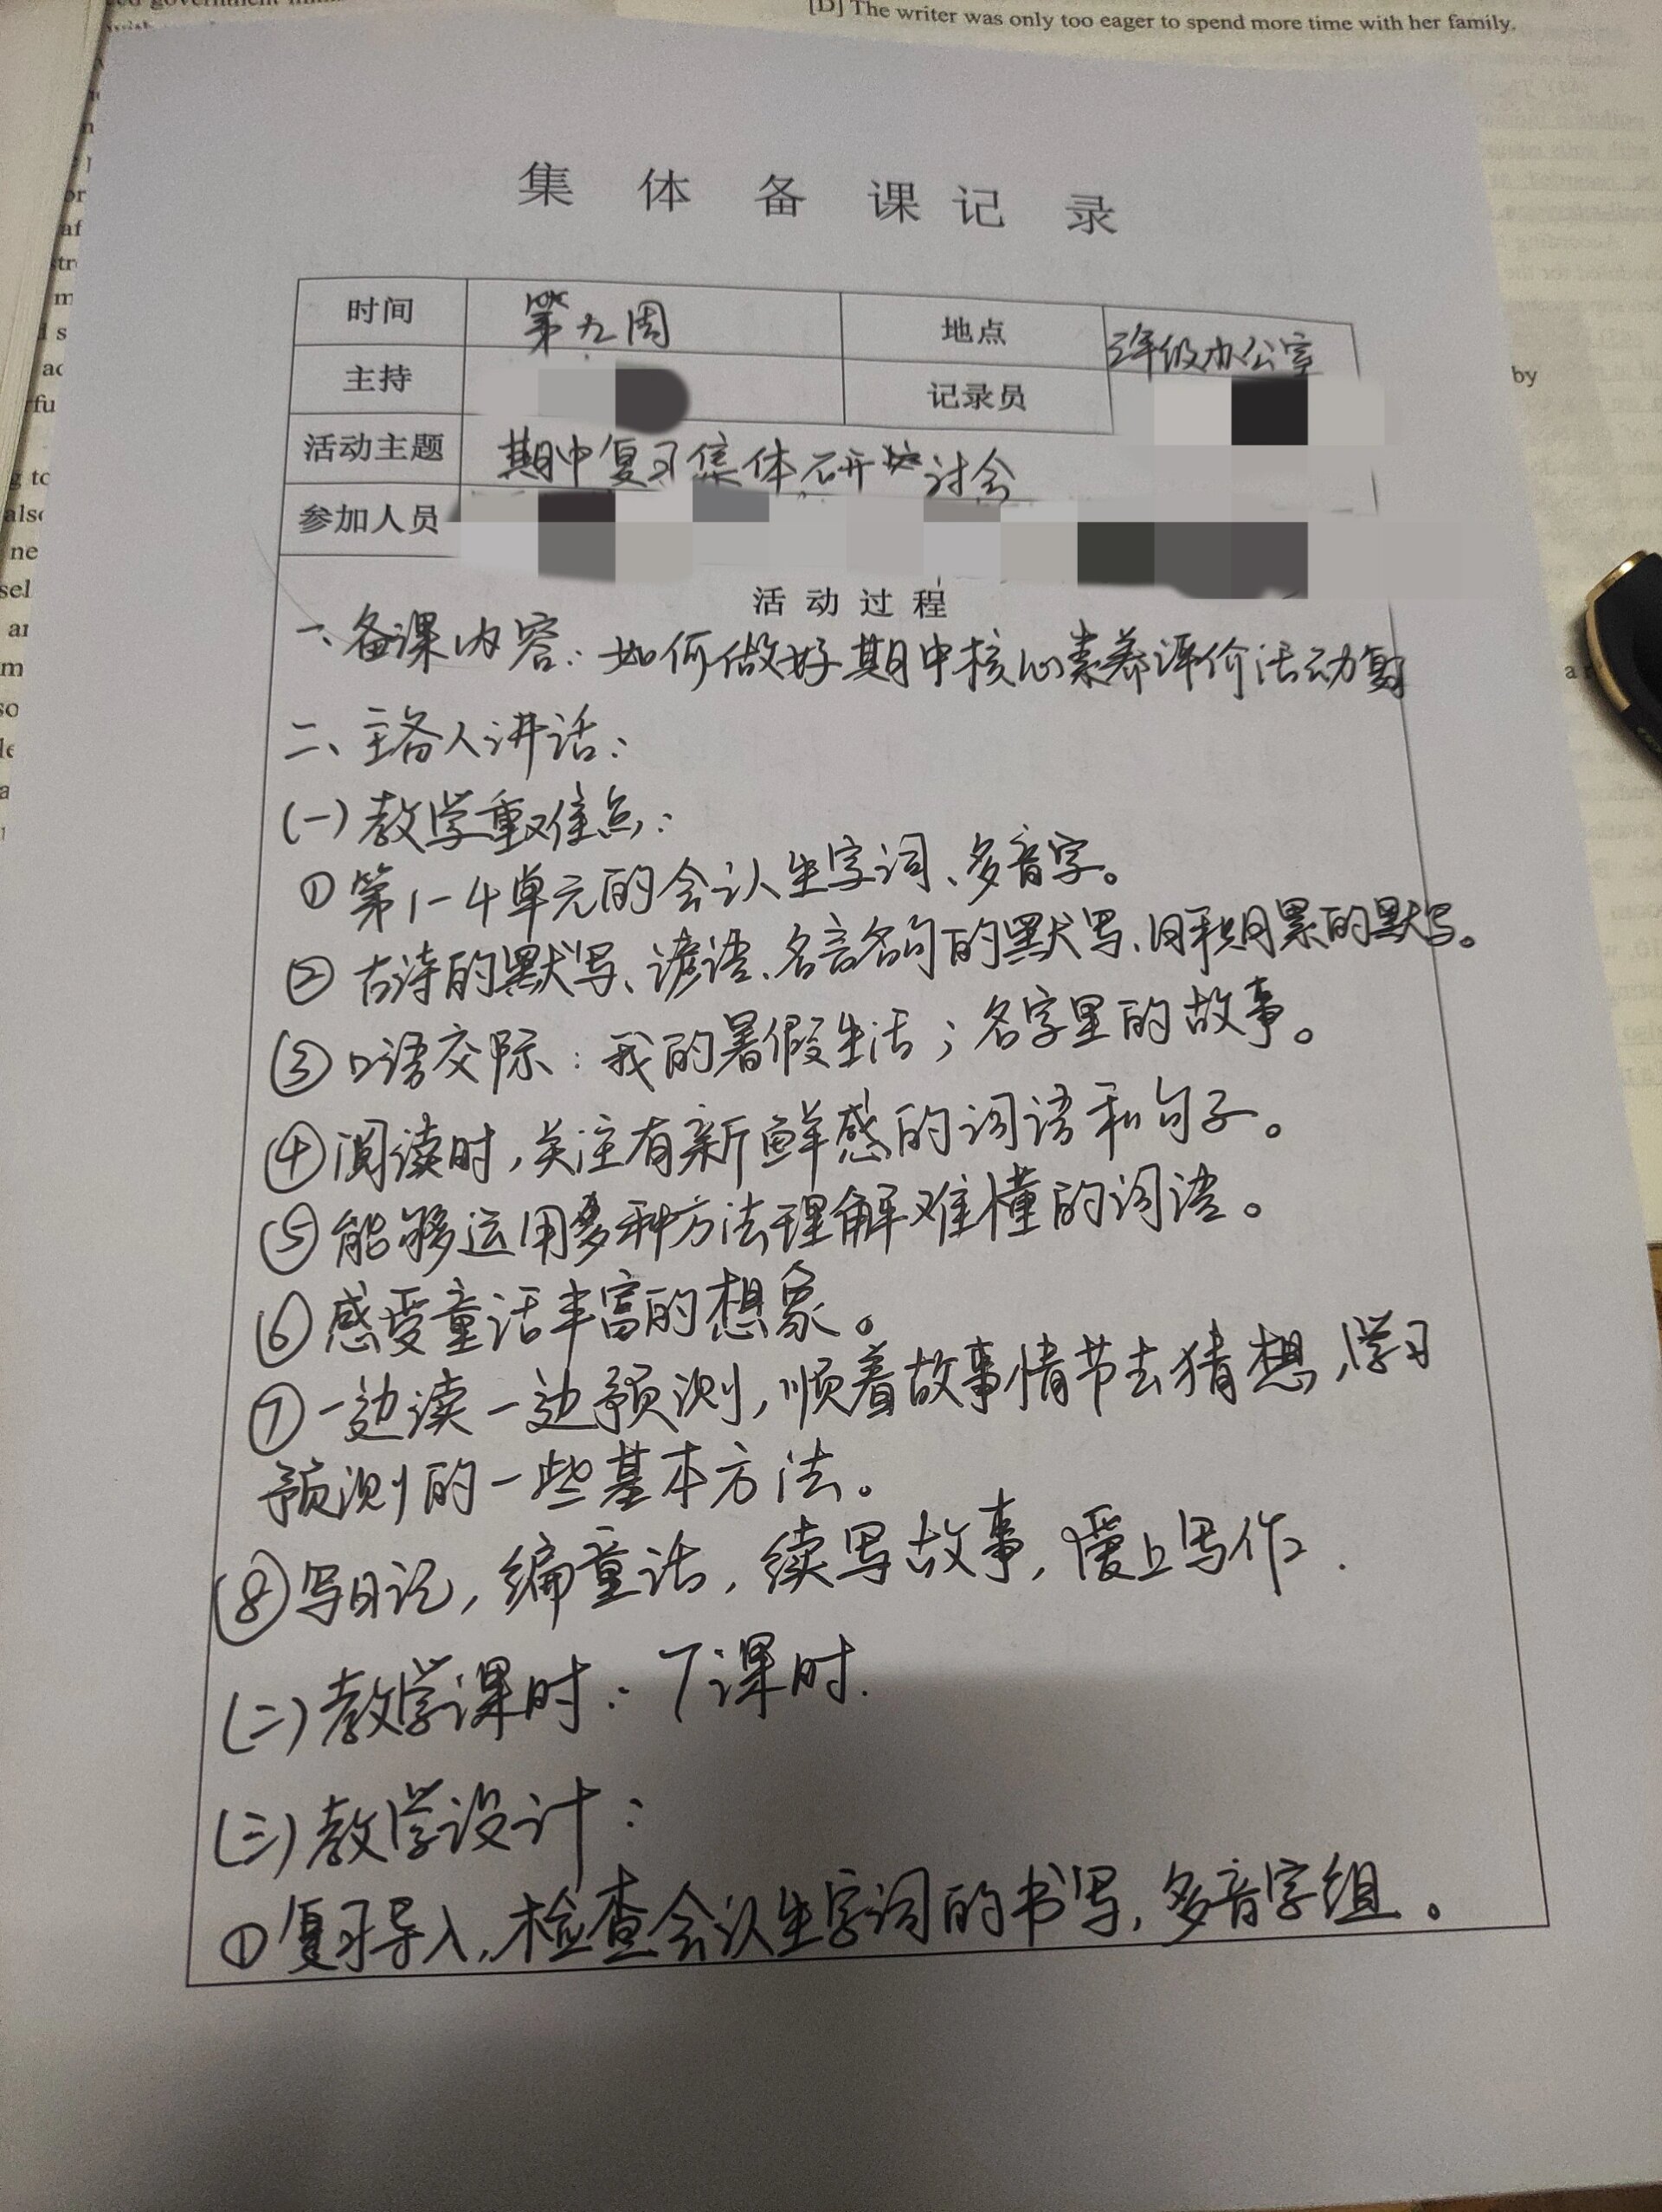 [D] The writer was only too eager to spend more time with her family.
集体备课记录
时间 第九周 地点 三年级办公室
主持 记录员
活动主题 期中复习集体研讨会
参加人员
活动过程
一、备课内容：如何做好期中核心素养评价活动复习
二、主备人讲话：
(一)教学重难点：
①第1-4单元的会认生字词、多音字。
②古诗的默写、谚语、名言名句的默写、日积月累的默写。
③口语交际：我的暑假生活；名字里的故事。
④阅读时，关注有新鲜感的词语和句子。
⑤能够运用多种方法理解难懂的词语。
⑥感受童话丰富的想象。
⑦一边读一边预测，顺着故事情节去猜想，学习
预测的一些基本方法。
⑧写日记，编童话，续写故事，爱上写作.
(二)教学课时：7课时.
(三)教学设计：
①复习导入，检查会认生字词的书写，多音字组。
by